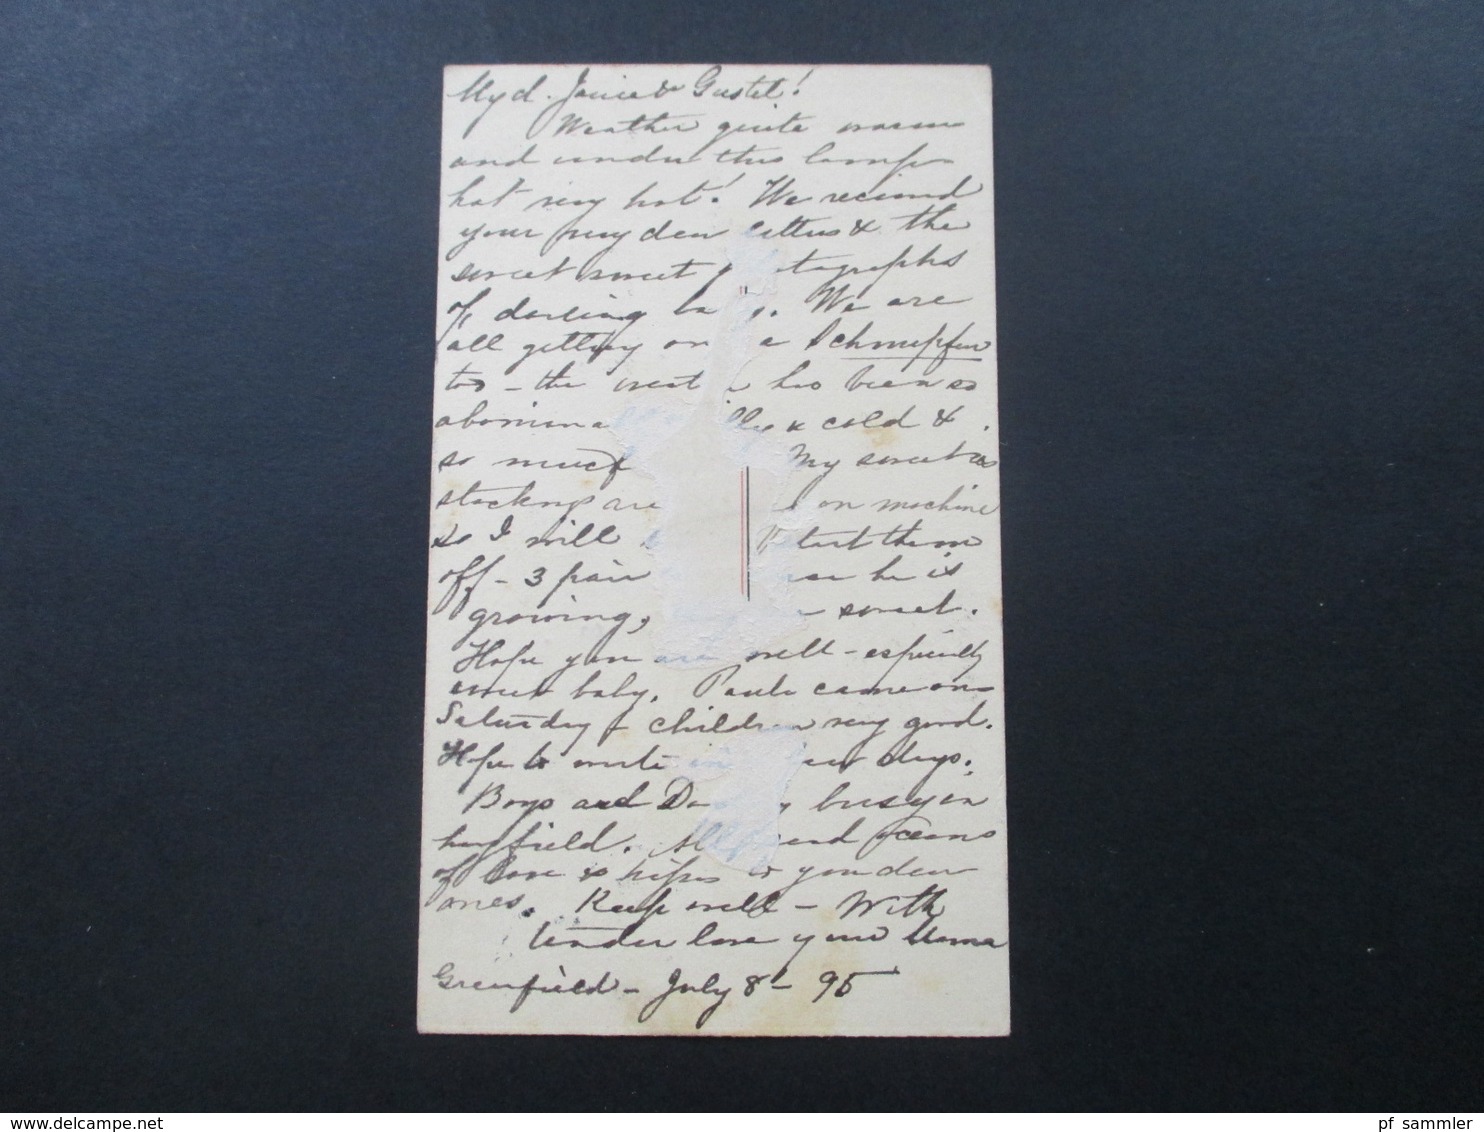 My d. Janice & Gustel!
Weather quite warm
and under this lamp
hot very hot! We received
your very dear letters & the
sweet sweet tographs
of darling We are
all getting Schnupfen
too - the has been so
cold &
so much My sweet
stockings are on machine
so I will start them
off - 3 pair he is
growing, sweet.
Hope you are well - especially
sweet baby. Paula came on
Saturday & children very good.
Hope to write in days.
Boys and busy in
hayfield. send oceans
of love & kisses to you dear
ones. Keep well - With
tender love your Mama
Greenfield - July 8 - 95
pf sammler
delcampe.net